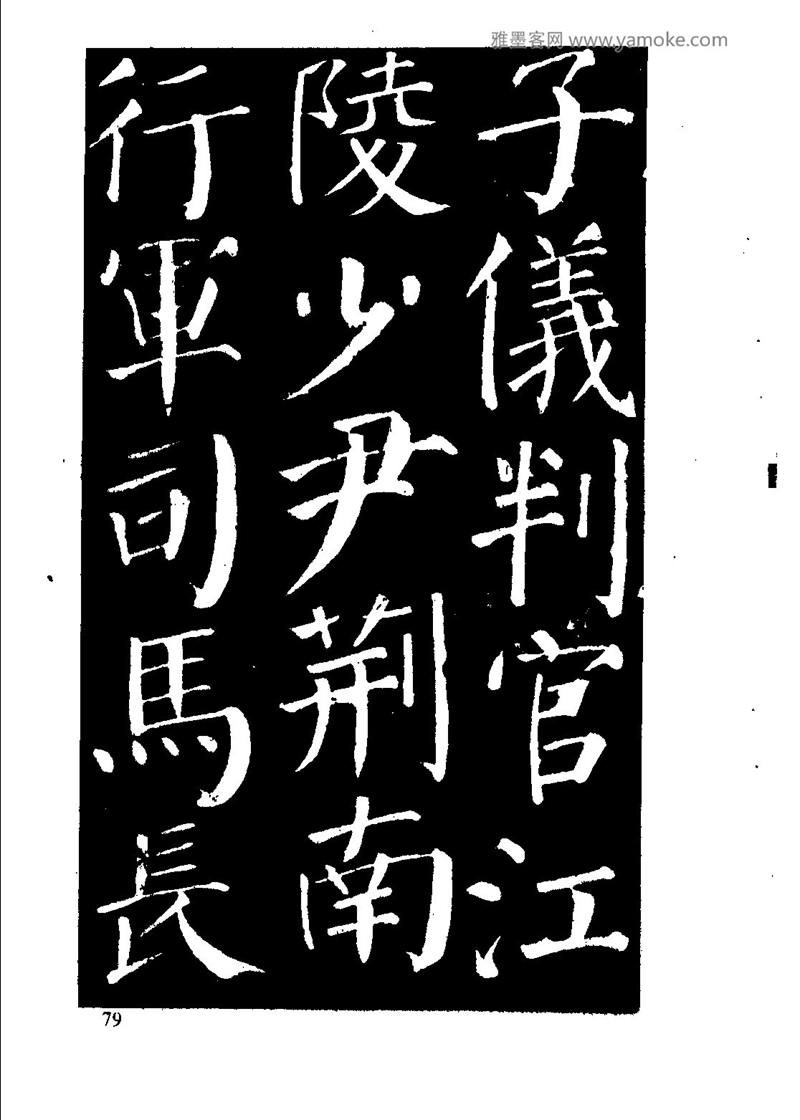 雅墨客网 www.yamoke.com
子儀判官江
陵少尹荊南
行軍司馬長
79